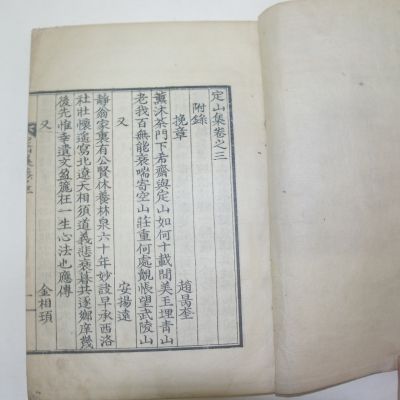 定山集卷之三
附錄
挽章
趙昺奎
薰沐茶門下若齋與定山如何十載間美玉埋青山
老我百無能衰喘寄空山莊重何處覿悵望武陵山
又
安揚遠
靜翁家裏有公賢休養林泉六十年妙說早承西洛
社壯懷遙寫北遼天相須道義悲衰暮共逐鄉庠幾
後先惟幸遺文盈篋在一生心法也應傳
又
金相頊
定山集卷三